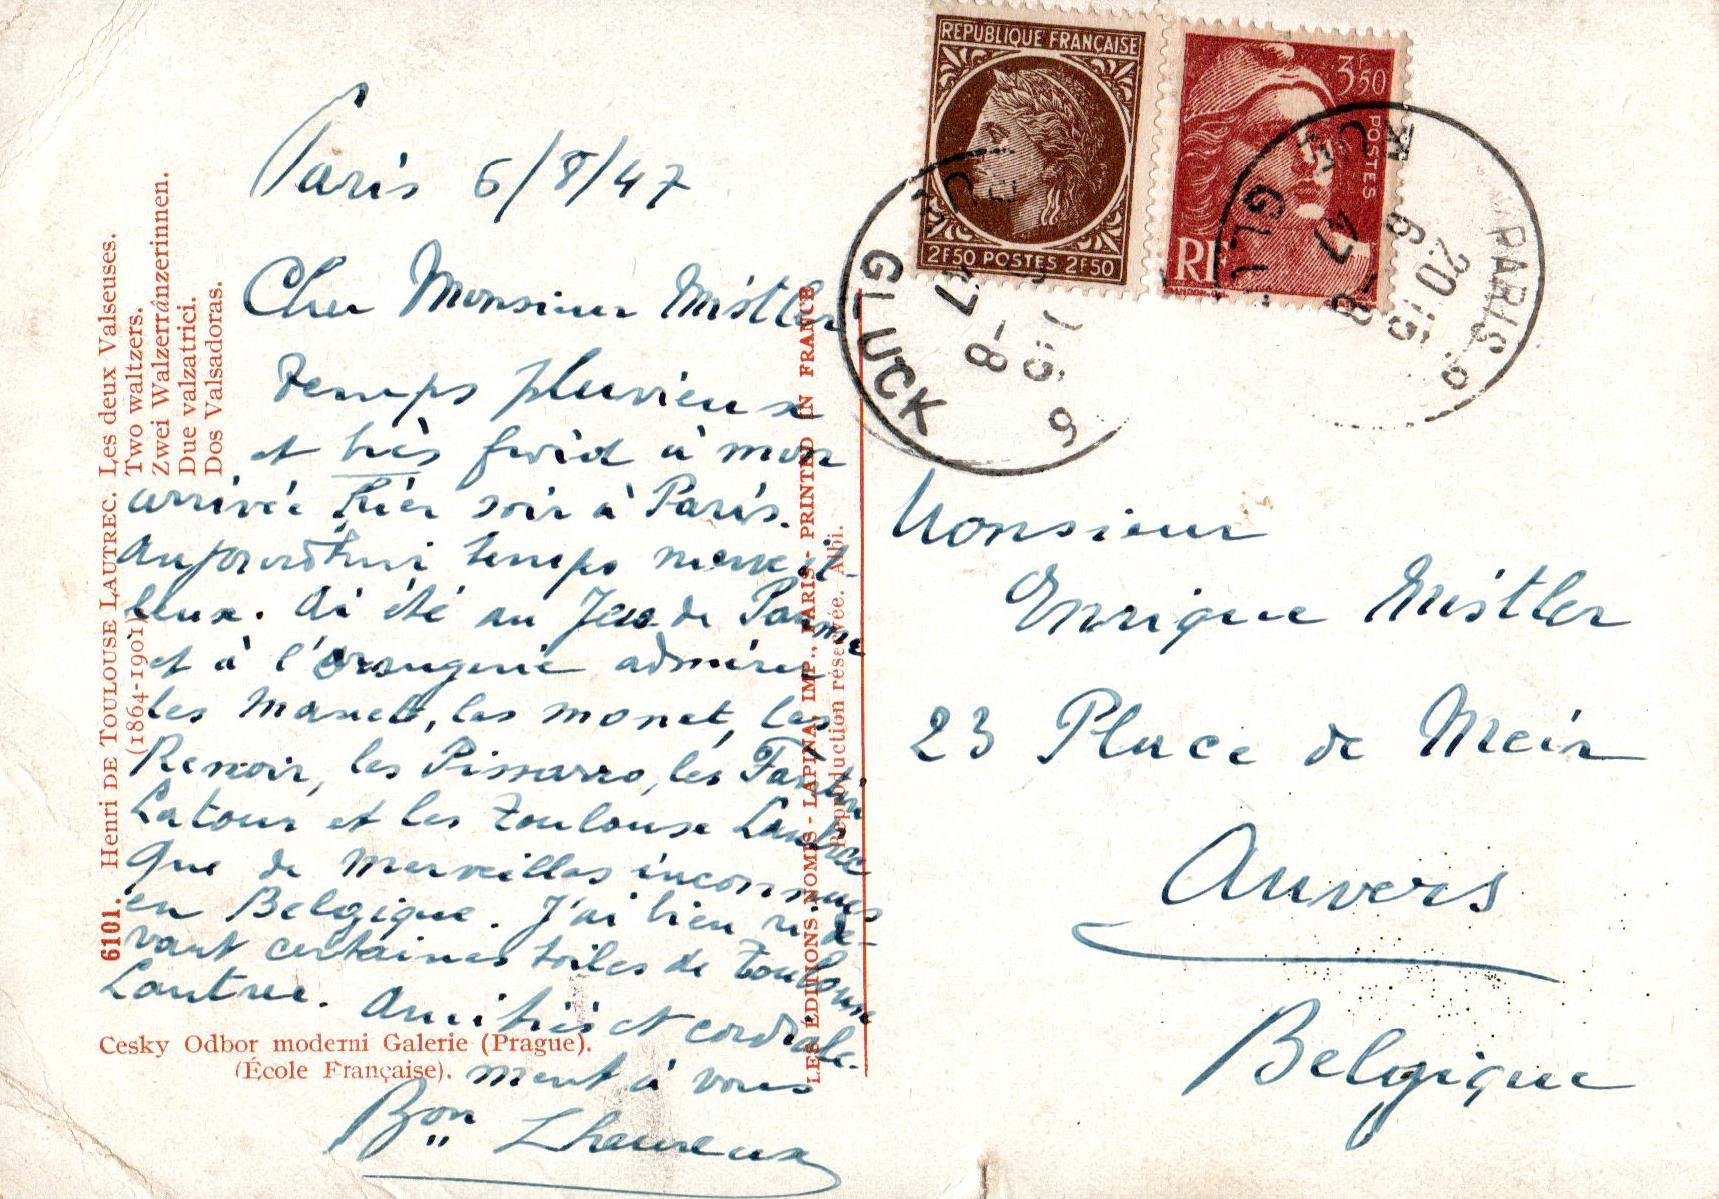 Paris 6/8/47
Cher Monsieur Mistler
Temps pluvieux
et très froid à mon
arrivée hier soir à Paris.
Aujourd'hui temps merveil-
leux. Ai été au Jeu de Paume
et à l'Orangerie admirer
les Manet, les Monet, les
Renoir, les Pissarro, les Fantin
Latour et les Toulouse Lautrec
Que de merveilles inconnues
en Belgique. J'ai bien ri de-
vant certaines toiles de Toulouse
Lautrec. Amitiés et cordiale-
ment à vous
Bon Lheureux
6101. Henri DE TOULOUSE LAUTREC. Les deux Valseuses.
(1864-1901) Two waltzers.
Zwei Walzerränzerinnen.
Due valzatrici.
Dos Valsadoras.
Cesky Odbor moderni Galerie (Prague).
(École Française).
LES ÉDITIONS NOMIS - LAPINA, IMP., PARIS - PRINTED IN FRANCE
Reproduction réservée. Albi.
REPUBLIQUE FRANÇAISE
2F50 POSTES 2F50
3F50
POSTES
RF
GLUCK
47
-8
6
PARIS
RUE GLUCK
6
20 15
47
-8
Monsieur
Enrique Mistler
23 Place de Meir
Anvers
Belgique